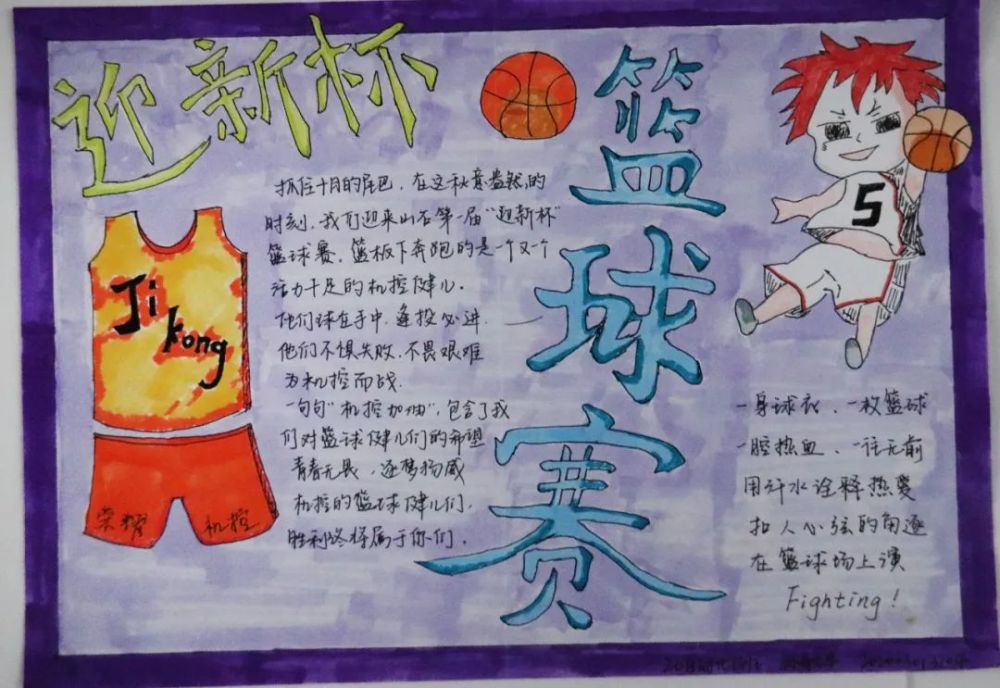 迎新杯
篮球赛
抓住十月的尾巴，在这秋意盎然的
时刻，我们迎来山石第一届“迎新杯”
篮球赛，篮板下奔跑的是一个又一个
活力十足的机控健儿.
他们球在手中，逢投必进.
他们不惧失败，不畏艰难
为机控而战.
一句句“机控加油”，包含了我
们对篮球健儿们的希望
青春无畏，逐梦扬威
机控的篮球健儿们.
胜利终将属于你们.
Ji
kong
荣耀
机控
5
一身球衣、一枚篮球
一腔热血、一往无前
用汗水诠释热爱
扣人心弦的角逐
在篮球场上演
Fighting!